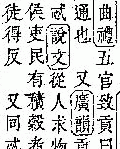 曲禮五官致貢曰
通也又廣韻
貣說文從人求物
侯吏民有積穀者
徒得反又同貣